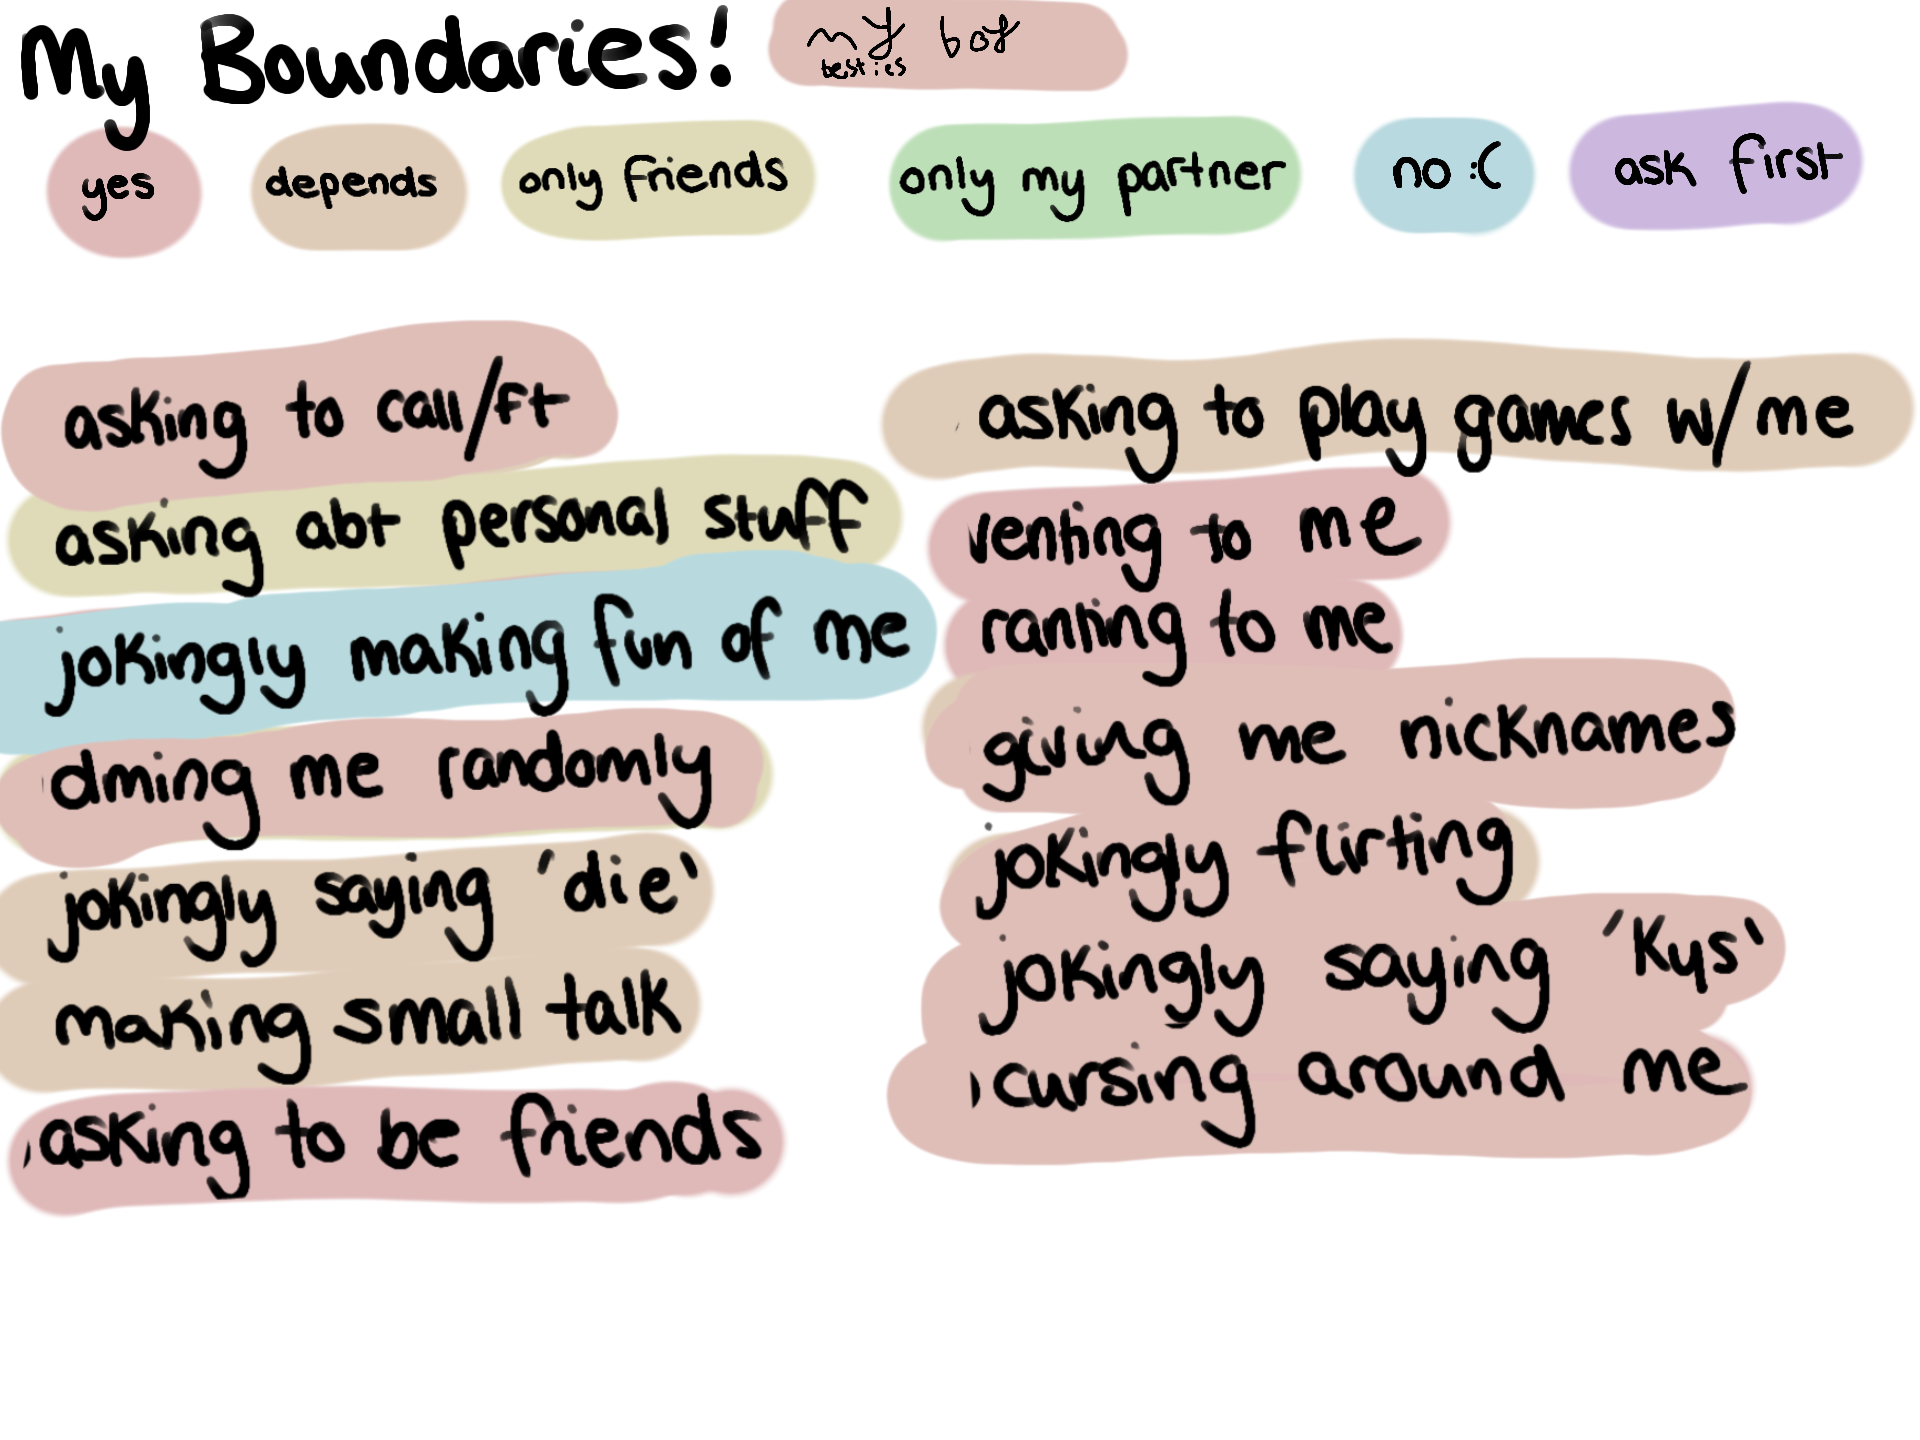 My Boundaries!
my boy
besties
yes
depends
only friends
only my partner
no :(
ask first
asking to call/ft
asking abt personal stuff
jokingly making fun of me
dming me randomly
jokingly saying 'die'
making small talk
asking to be friends
asking to play games w/me
venting to me
ranting to me
giving me nicknames
jokingly flirting
jokingly saying 'kys'
cursing around me